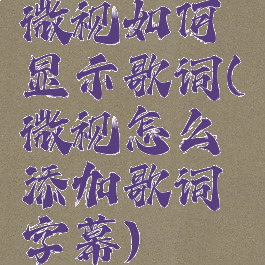 微视如何
显示歌词(
微视怎么
添加歌词
字幕)